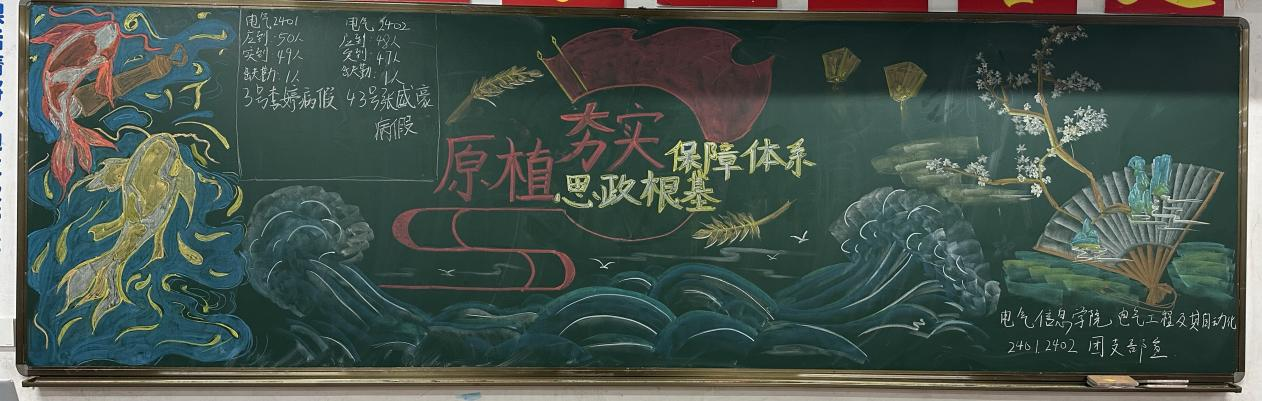 电气2401
应到:50人
实到:49人
缺勤:1人
3号李婷病假
电气2402
应到:48人
实到:47人
缺勤:1人
43号张盛豪
病假
原植
夯实
保障体系
思政根基
电气信息学院 电气工程及其自动化
2401.2402 团支部宣